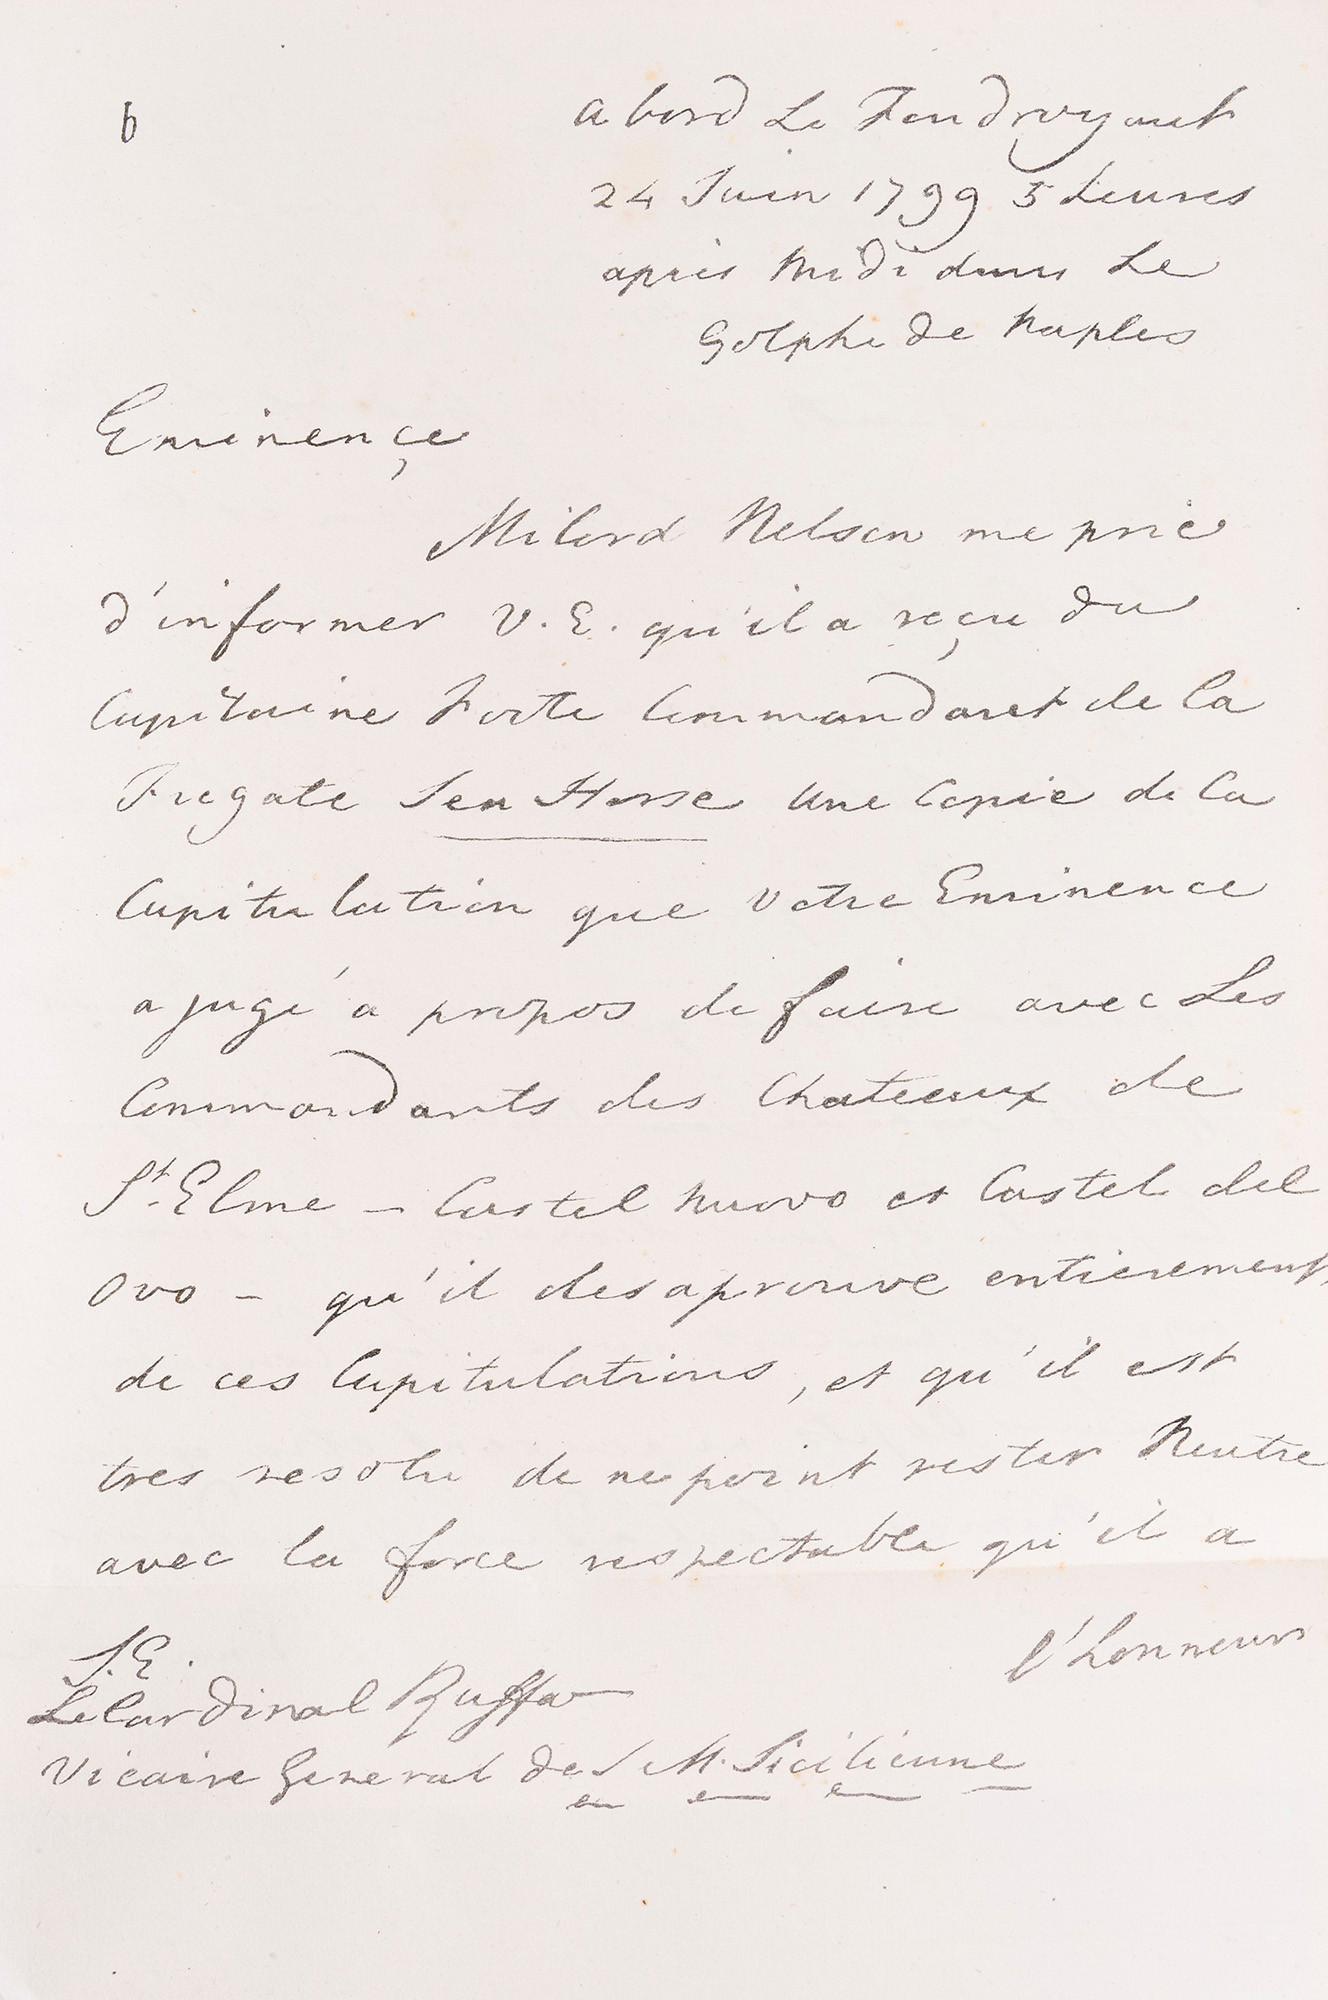 6
a bord Le Foudroyant
24 Juin 1799 5 heures
après midi dans Le
Golphe de Naples
Eminençe
Milord Nelson me prie
d'informer V. E. qu'il a reçu du
Capitaine Foote Commandant de la
Fregate Sea Horse une Copie de la
Capitulation que Votre Eminence
a jugé a propos de faire avec Les
Commandants des Chateaux de
St. Elme - Castel Nuovo et Castel del
Ovo - qu'il desaprouve entierement
de ces Capitulations, et qu'il est
tres resolu de ne point rester Neutre
avec la force respectable qu'il a
l'honneur
S. E.
Le Cardinal Ruffo
Vicaire General de S M. Sicilienne